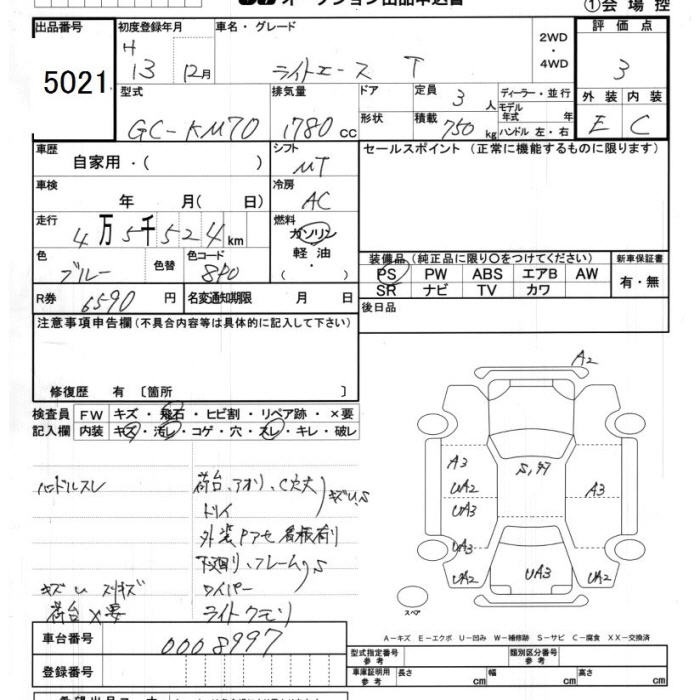 オークション出品申込書
①会場控
出品番号
5021
初度登録年月
H 13 12月
車名・グレード
ライトエース T
2WD
・
4WD
評価点
3
型式
GC-KM70
排気量
1780 cc
ドア
定員 3人
ディーラー・並行
モデル年式 年
形状
積載 750kg
ハンドル 左・右
外装 内装
E C
車歴
自家用・( )
シフト
MT
セールスポイント(正常に機能するものに限ります)
車検
年 月(日)
冷房
AC
走行
4万5千524km
燃料
ガソリン
軽油
( ・ )
色
ブルー
色替
色コード
8P0
装備品(純正品に限り○をつけてください)
PS PW ABS エアB AW
SR ナビ TV カワ
新車保証書
有・無
R券 6590 円
名変通知期限 月 日
後日品
注意事項申告欄(不具合内容等は具体的に記入して下さい)
修復歴 有 〔箇所 〕
検査員記入欄
FW キズ・飛石・ヒビ割・リペア跡・×要
内装 キズ・汚レ・コゲ・穴・スレ・キレ・破レ
ハンドルスレ
荷台、アオリ、C穴大
トリイ
キズU,S
外装Pアセ 看板有り
下廻り、フレームS
キズU
ワイパー
荷台×要
ライトクモリ
A2
A3
UA2
UA3
S,97
A3
UA3
UA2
UA3
UA2
スペア
A-キズ E-エクボ U-凹み W-補修跡 S-サビ C-腐食 XX-交換済
車台番号
0008997
登録番号
型式指定番号
参考
類別区分番号
参考
車庫証明用
参考
長さ cm
幅 cm
高さ cm
希望出品コーナー